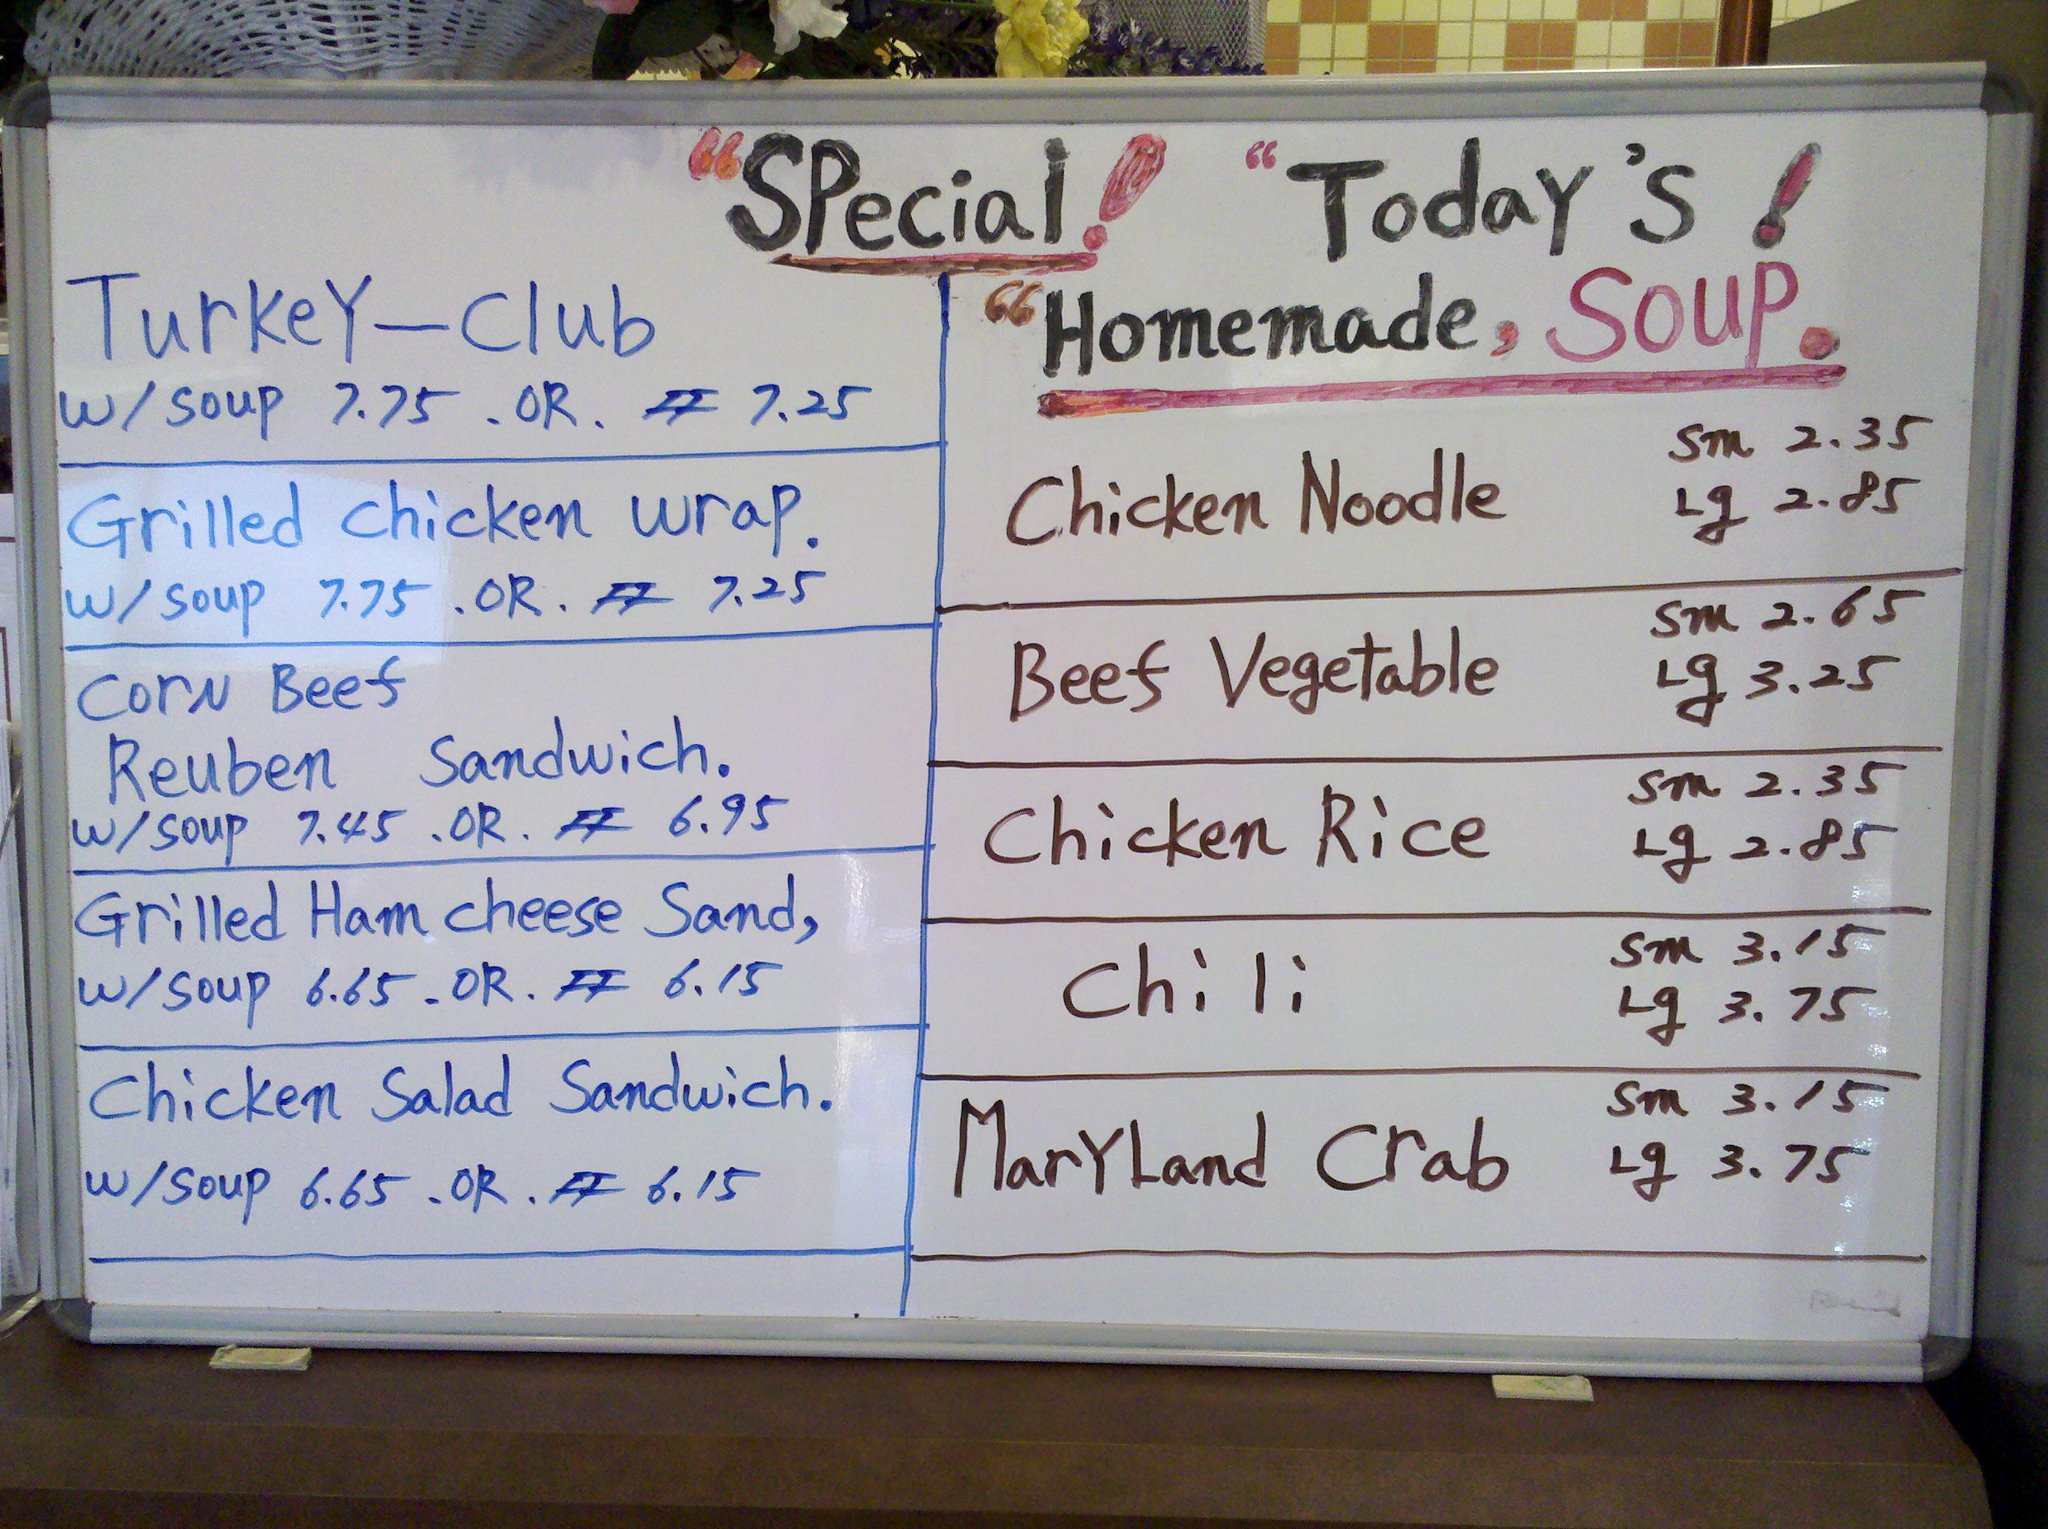 “Special! “Today's!
“Homemade, Soup.
Turkey-Club
w/soup 7.75 .OR. FF 7.25
Grilled chicken wrap.
w/soup 7.75 .OR. FF 7.25
Corn Beef
Reuben Sandwich.
w/soup 7.45 .OR. FF 6.95
Grilled Ham cheese Sand,
w/soup 6.65 .OR. FF 6.15
Chicken Salad Sandwich.
w/soup 6.65 .OR. FF 6.15
Chicken Noodle
Sm 2.35
Lg 2.85
Beef Vegetable
Sm 2.65
Lg 3.25
Chicken Rice
Sm 2.35
Lg 2.85
Chili
Sm 3.15
Lg 3.75
Maryland Crab
Sm 3.15
Lg 3.75